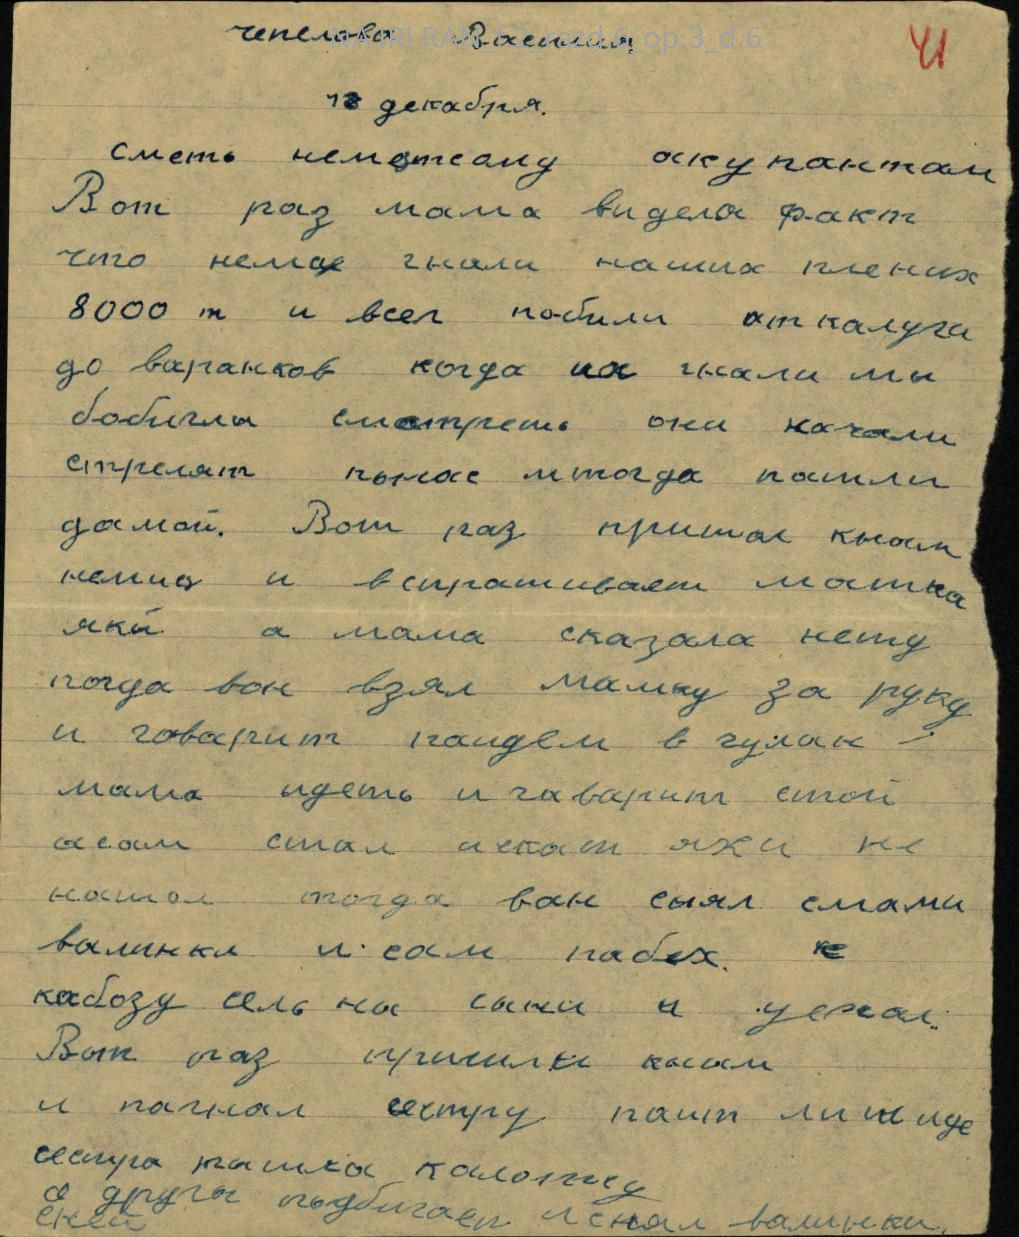 чепелова Василия
41
13 декабря.
сметь неметсаму акупантам
Вот раз мама видела факт
что немце гнали наших плених
8000 т и всех побили от калуги
до варанков когда их гнали мы
бобигли сматреть они начали
стрелят пынас итогда пашли
дамой. Вот раз пришол кнам
немиц и вспрашивает матка
яки а мама сказала нету
тогда вон взял мамку за руку
и гаварит паидем в чулан
мама идеть и гаварит стой
асам стал искат яки не
нашол тогда ван сьял смами
валинки и сам пабех. к
кабозу сель на сани и уехал.
Вот раз пришли кнам
и пагнал сестру пашт ли и иде
сестра пашла калотцу
а другы подбигает и снял валинки.
сней